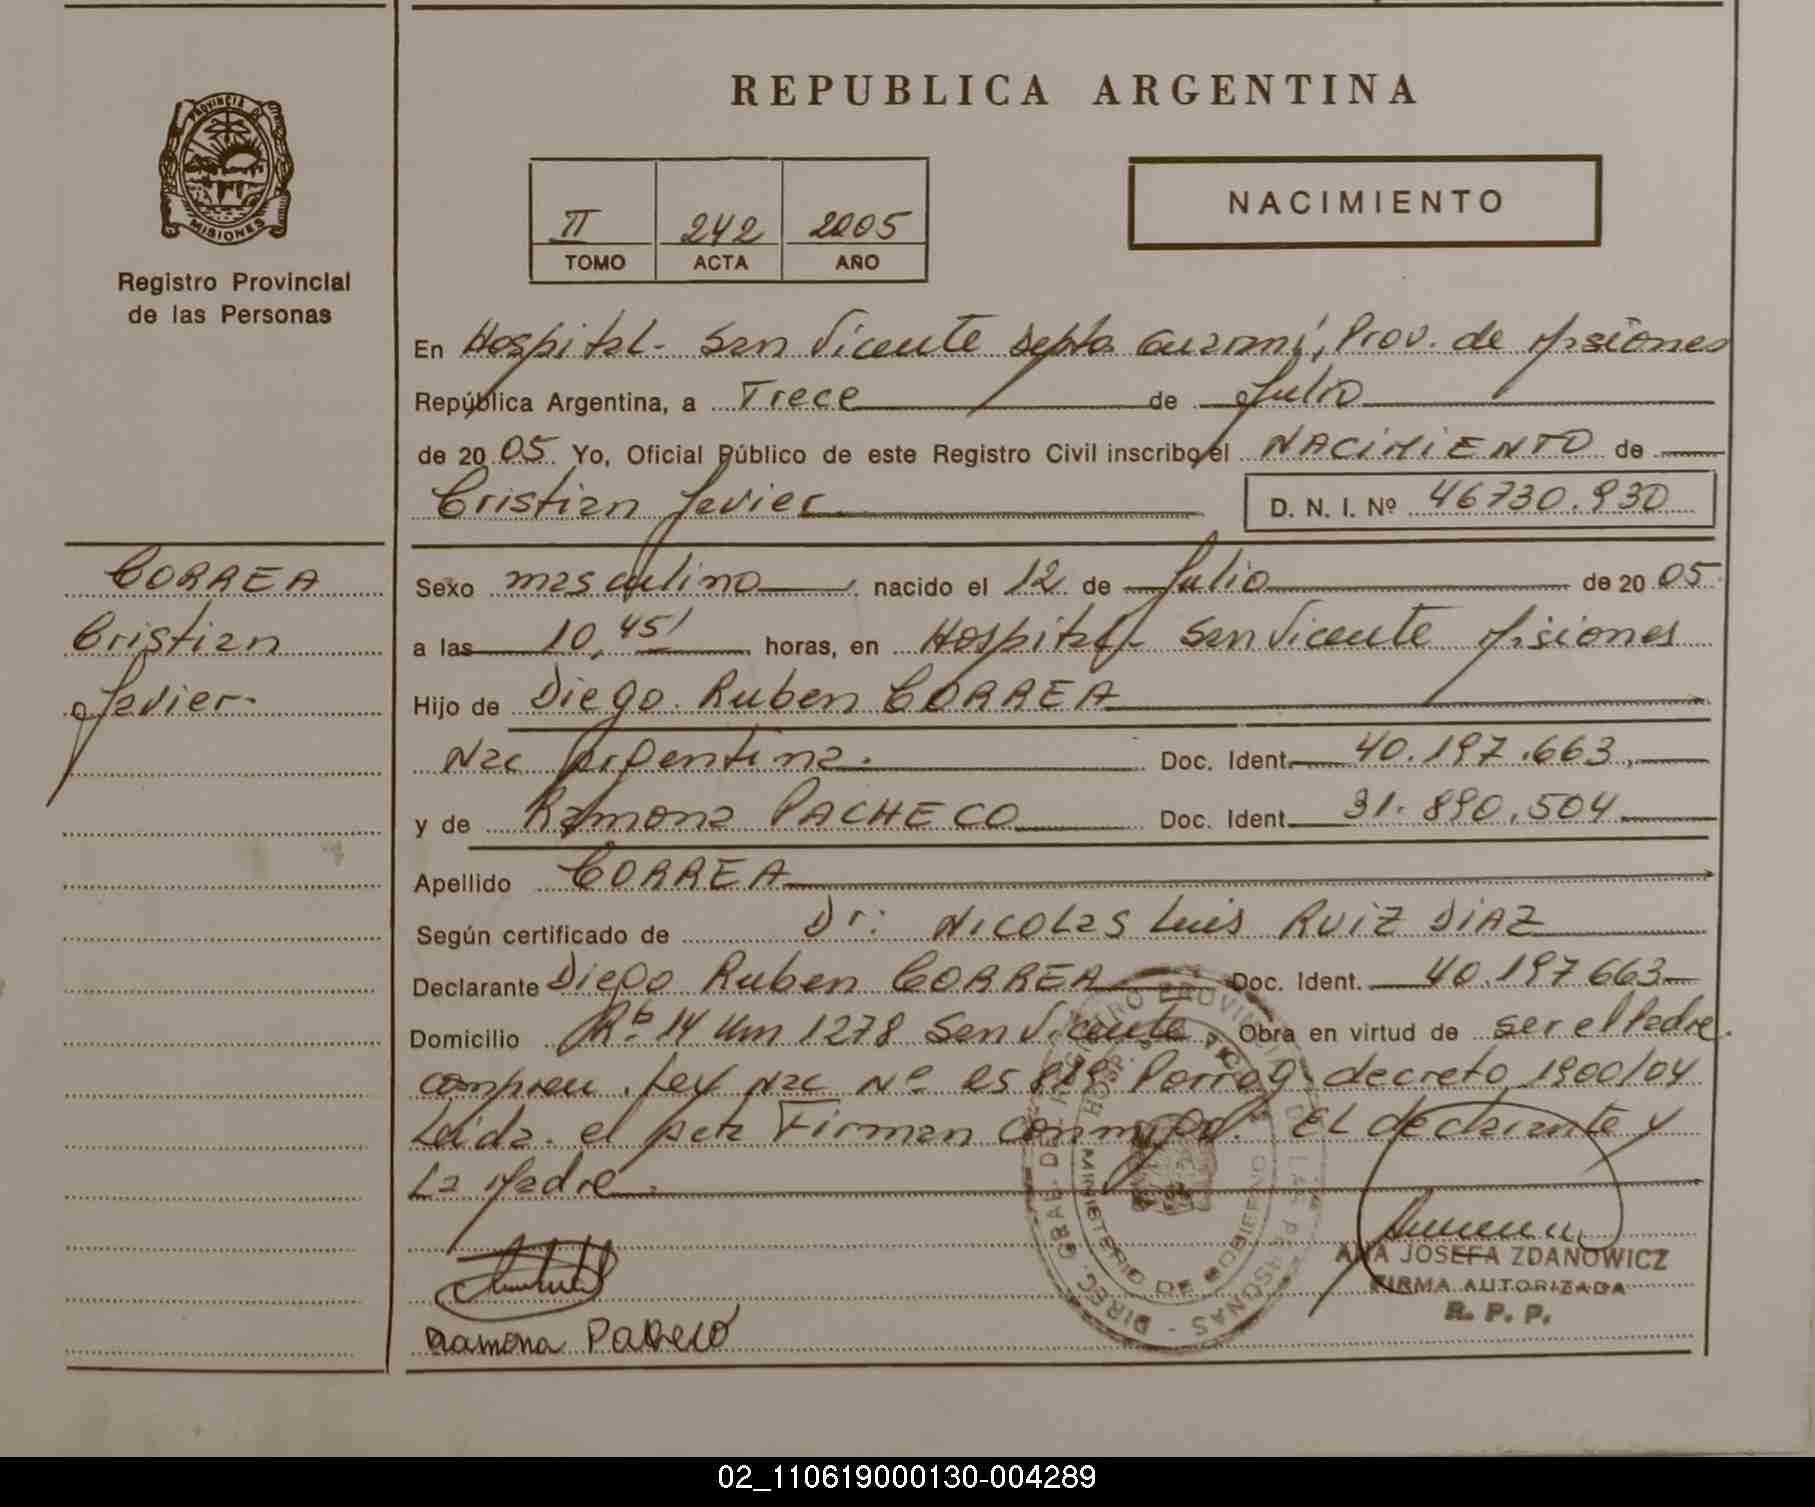 PROVINCIA DE
MISIONES
Registro Provincial
de las Personas
CORREA
Cristian
Javier.
REPUBLICA ARGENTINA
II 242 2005
TOMO ACTA AÑO
NACIMIENTO
En Hospital - San Vicente Depto Guarani, Prov. de Misiones
República Argentina, a Trece de Julio
de 20 05 Yo, Oficial Público de este Registro Civil inscribo el NACIMIENTO de
Cristian Javier D. N. I. Nº 46730.930
Sexo masculino nacido el 12 de Julio de 20 05
a las 10,45' horas, en Hospital - San Vicente Misiones
Hijo de Diego Ruben CORREA
Nac Argentina. Doc. Ident. 40.197.663
y de Ramona PACHECO Doc. Ident. 31.890.504
Apellido CORREA
Según certificado de Dr: Nicolas Luis RUIZ DIAZ
Declarante Diego Ruben CORREA Doc. Ident. 40.197663
Domicilio 14 Km 1278 San Vicente Obra en virtud de ser el Padre.
Ley Nac Nº decreto 1900/04
Leida el acta Firman conmigo. El declarante y
La Madre
DIREC. GRAL. DEL REGISTRO PROVINCIAL DE LAS PERSONAS
MINISTERIO DE GOBIERNO
ANA JOSEFA ZDANOWICZ
FIRMA AUTORIZADA
R. P. P.
Ramona Pacheco
02_110619000130-004289